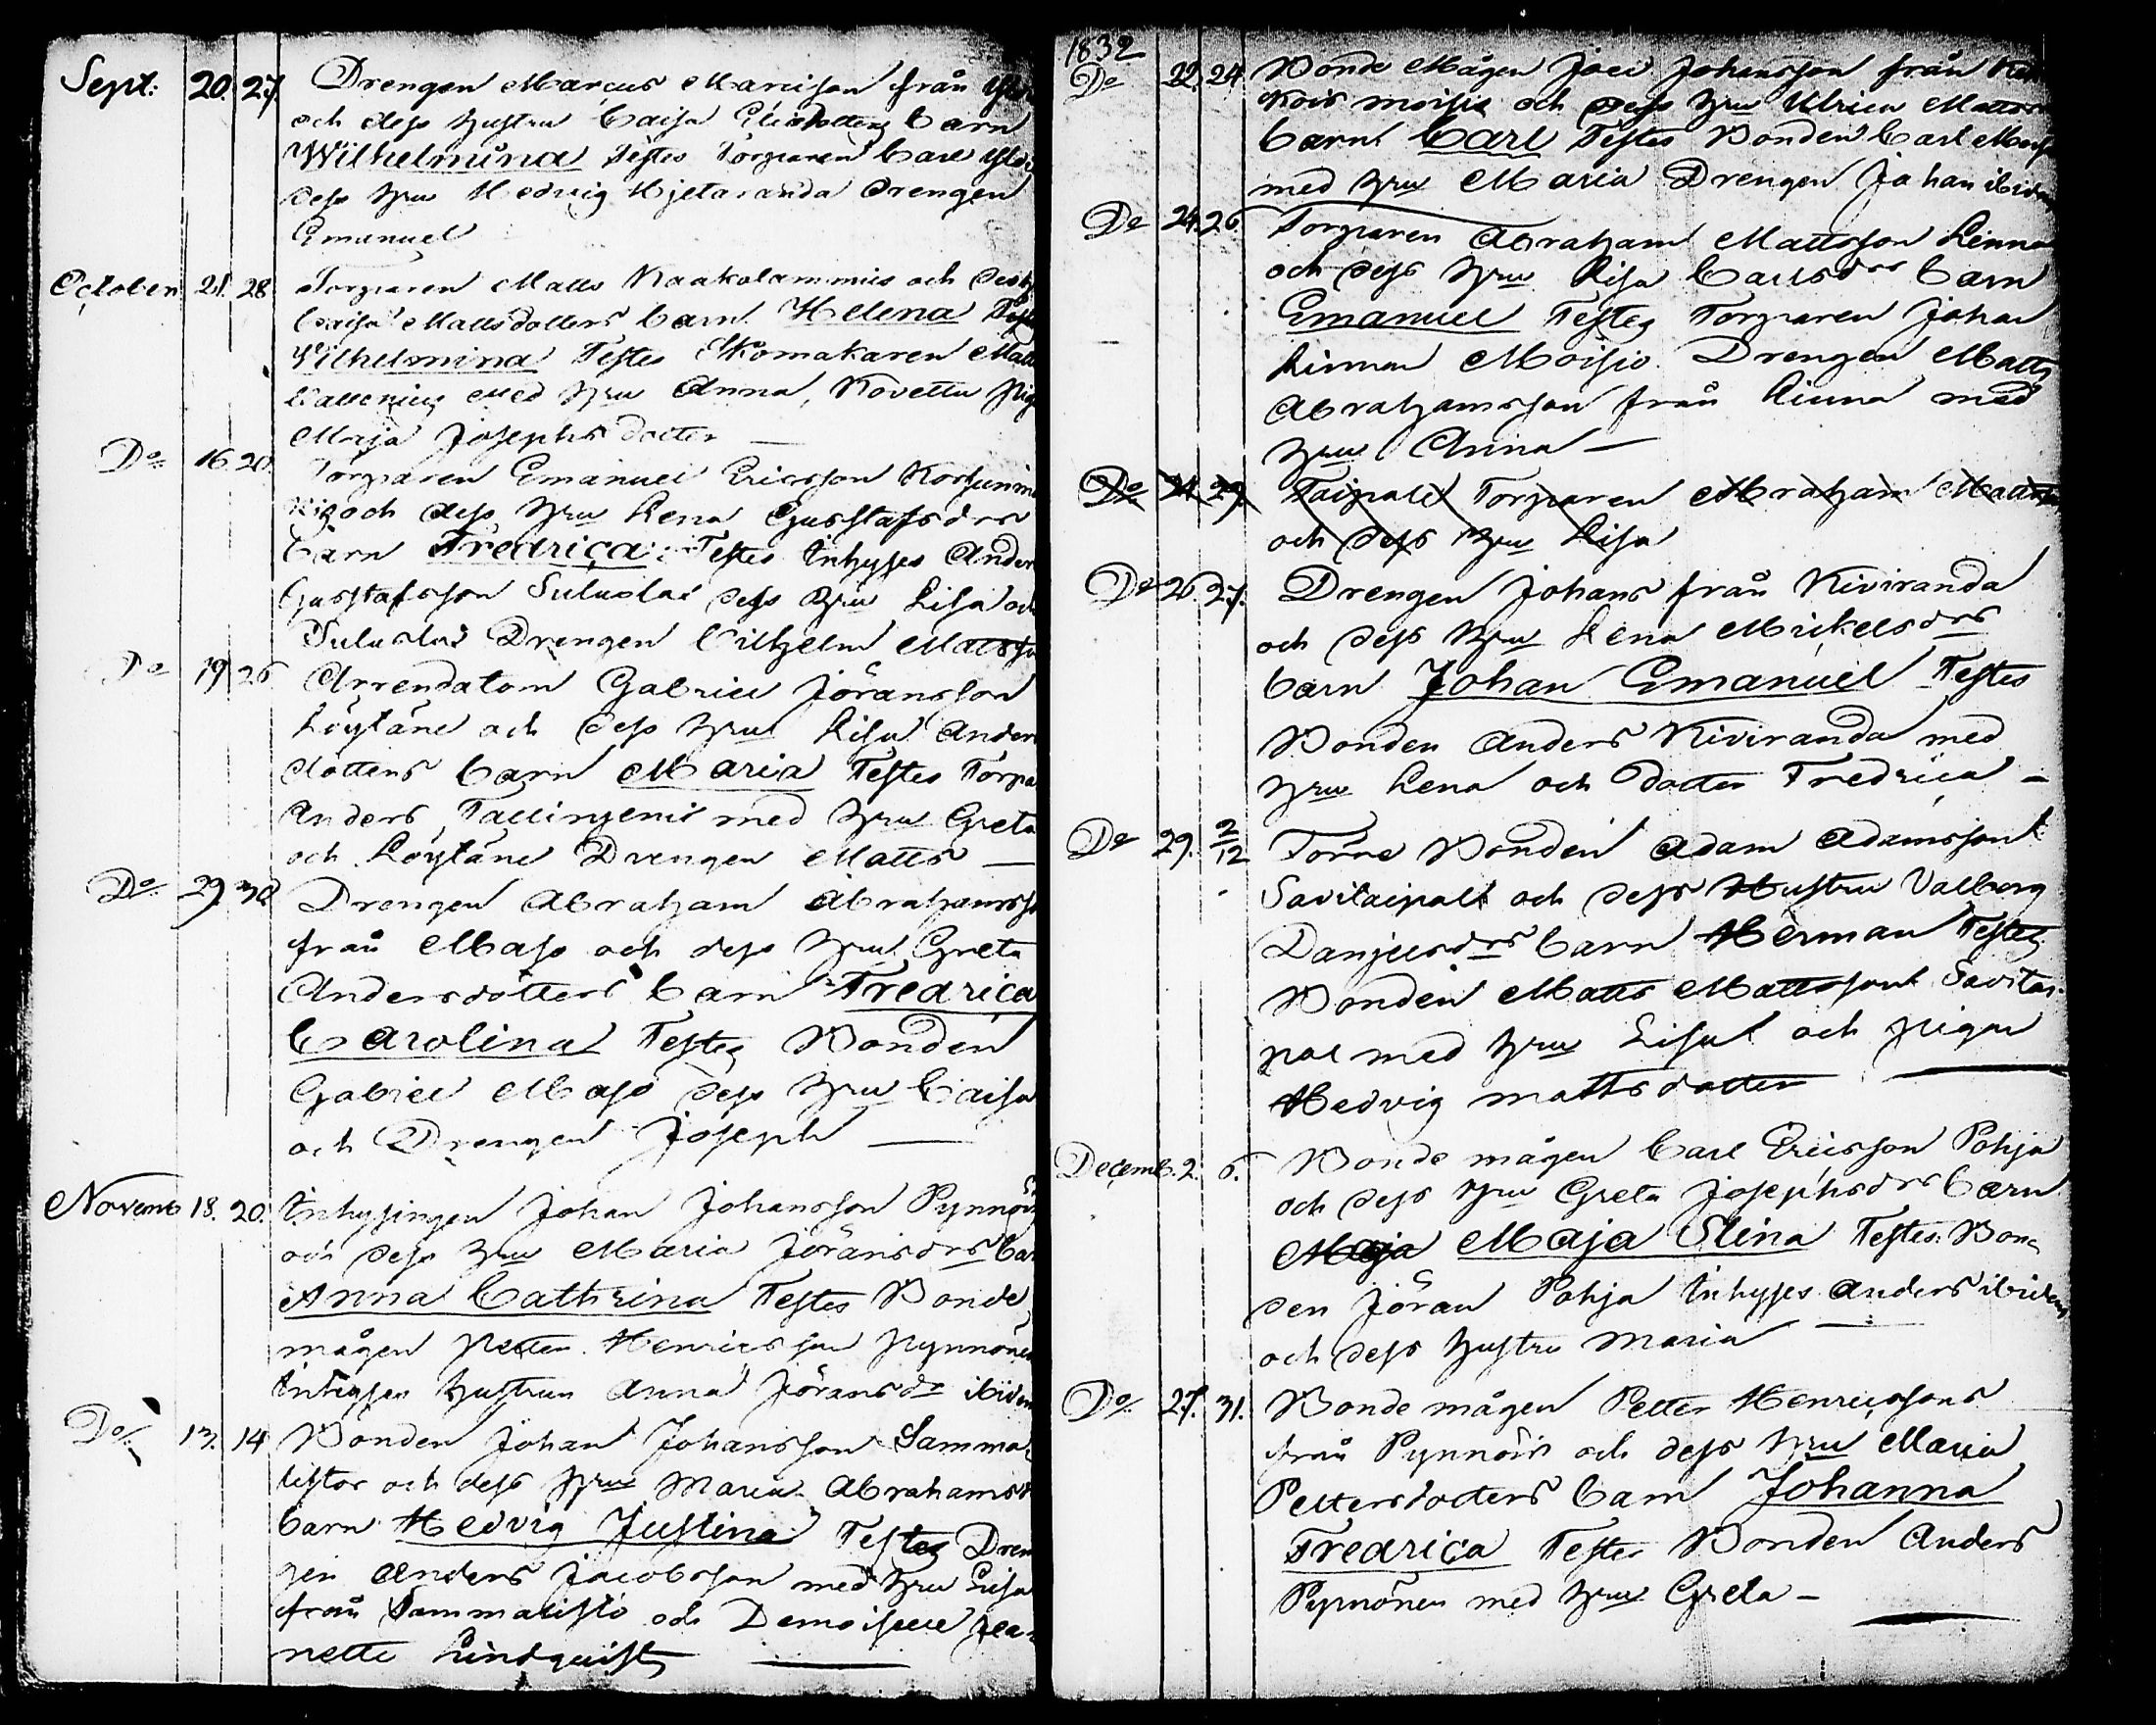 Sept: 20. 27. Drengen Marcus Marcisson från
och dess hustru Caisa Eliædotters barn
Wilhelmina Testes Torparen Carl
dess hru Hedvig Hjetaranda Drengen
Emanuel
October 21. 28. Torparen Matts Kaakolammis och dess
Caisa Mattsdotters barn Helena
Vilhelmina Testes Skomakaren Matts
Vallenius med hru Anna, Kovettu pig
Maja Josephsdotter —
Do 16 20. Torparen Emanuel Ericsson
och dess hru Lena Gustafsdrs
barn Fredrica: Testes Inhyses Anders
Gustafsson Suluslax dess hru Lisa och
Drengen Vilhelm Matsson
Do 19 26 Arrendatorn Gabriel Jöransson
Löytäne och dess hru Lisa Anders
dotters barn Maria Testes Torpa
Anders med hru Greta
och Löytäne Drengen Matts —
Do 29. 30 Drengen Abraham Abrahamsson
från Maso och dess hru Greta
Andersdotters barn Fredrica
Carolina Testes Bonden
Gabriel Maso dess hru Caisa
och Drengen Joseph —
Novemb 18. 20. Inhysingen Johan Johansson Pynnöis
och dess hru Maria Jöransdrs bar
Anna Cathrina Testes Bonde
mågen Petter Henricsson Pynnönen
Inhyses hustrun Anna Jöransdr ibidem
Do/. 13. 14 Bonden Johan Johansson Samma
listos och dess hru Maria Abrahamsd
barn Hedvig Justina Testes Dren
gen Anders Jacobsson med hru Lisa
från Sammalisto och Demoiselle Jea
nette Lindquist —
1832
Do 22. 24. Bonde Mågen Joel Johansson från
Kois moisio och dess hru Ulrica Mattsd
barn Carl Testes Bonden Carl
med hru Maria Drengen Johan ibidem
Do 24. 26. Torparen Abraham Mattsson Linna
och dess hru Lisa Carlsdrs barn
Emanuel Testes Torparen Johan
Linnan Moisio. Drengen Matts
Abrahamsson från Linna med
hru Anna —
Do 24 29. Taipale Torparen Abraham Mattsson
och dess hru Lisa
Do 26. 27. Drengen Johans från Kiviranda
och dess hru Lena Mickelsdrs
barn Johan Emanuel Testes
Bonden Anders Kiviranda med
hru Lena och dotter Fredrica —
Do 29. 2/12 Förre Bonden Adam Adamsson
Savitaipale och dess Hustru Valborg
Danjelsdrs barn Herman Testes
Bonden Matts Mattsson Savitai-
pal med hru Lisa och pigan
Hedvig mattsdotter —
Decemb. 2. 6. Bonde mågen Carl Ericsson Pohja
och dess hru Greta Josephsdrs barn
Maja Maja Stina Testes: Bon-
den Jöran Pohja Inhyses Anders ibidem
och dess hustru Maria —
Do/. 27. 31. Bonde mågen Petter Henricssons
från Pynnöis och dess hru Maria
Pettersdotters barn Johanna
Fredrica Testes Bonden Anders
Pynnönen med hru Greta —